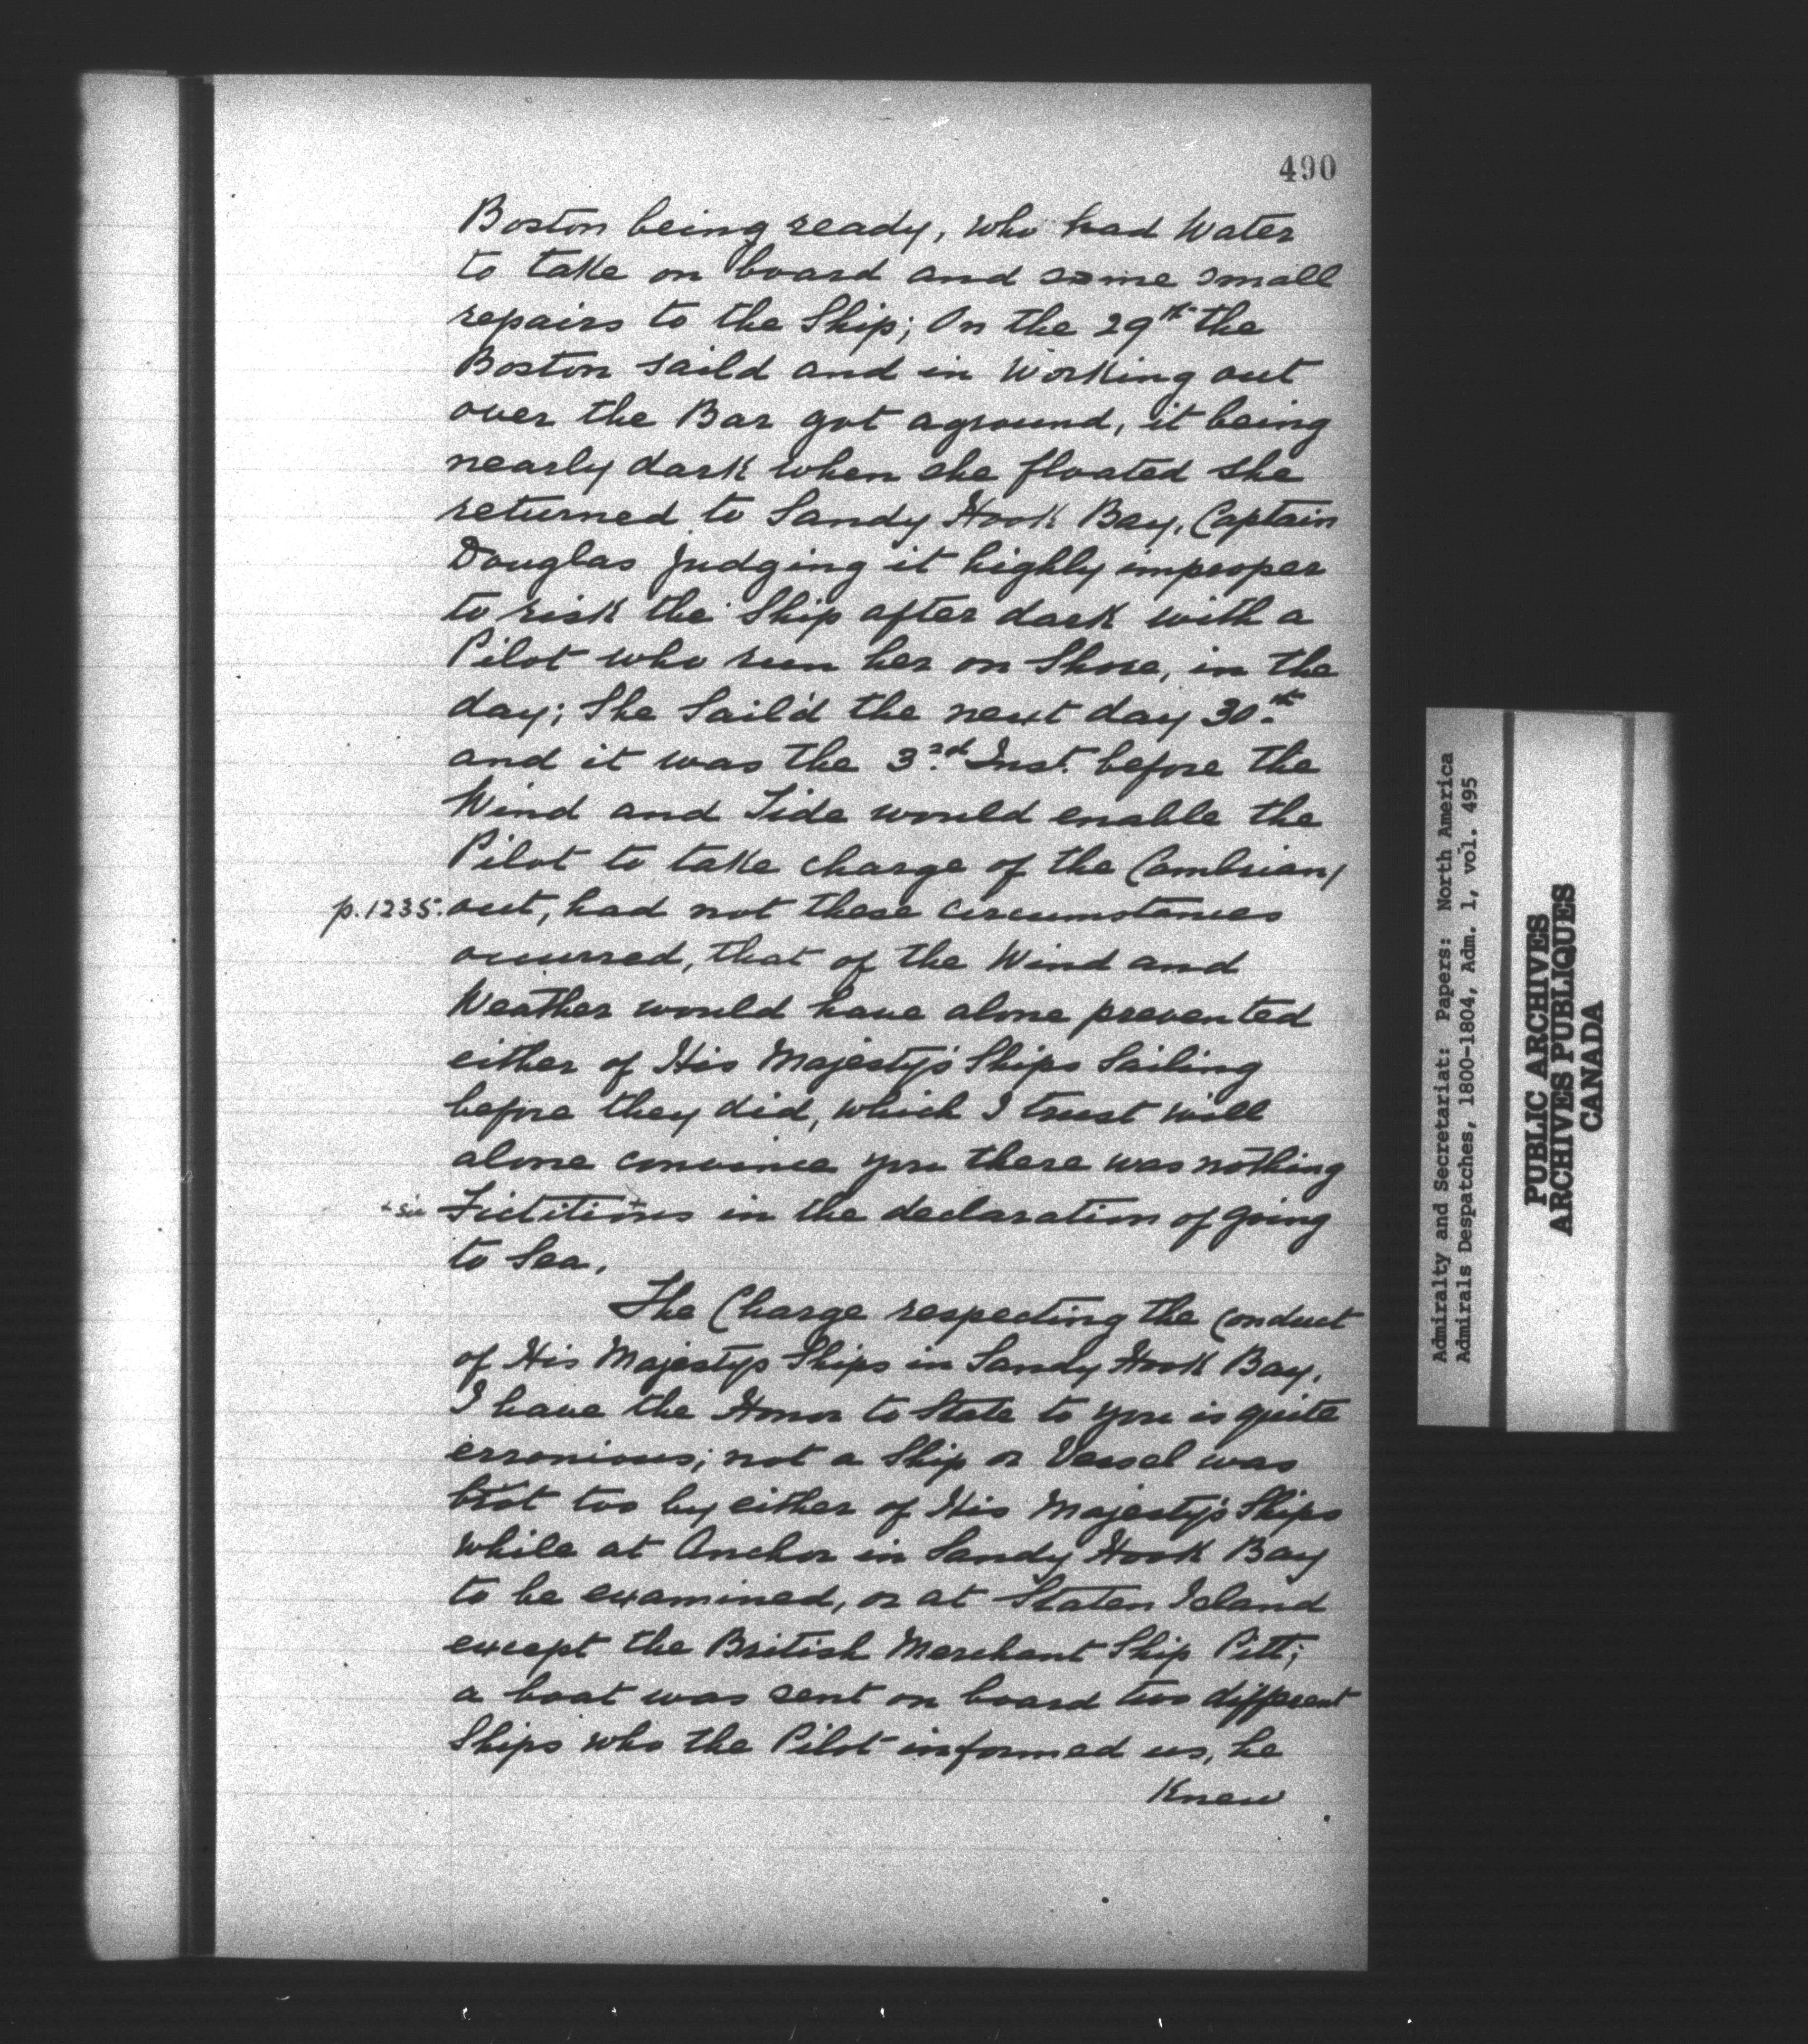 490
Boston being ready, who had Water
to take on board and some small
repairs to the Ship; On the 29th the
Boston saild and in Working out
over the Bar got aground, it being
nearly dark when she floated she
returned to Sandy Hook Bay, Captain
Douglas Judging it highly improper
to risk the Ship after dark with a
Pilot who run her on Shore, in the
day; She Sail'd the next day 30th
and it was the 3rd Inst. before the
Wind and Tide would enable the
Pilot to take charge of the Cambrian/
p.1235. out, had not these circumstances
occurred, that of the Wind and
Weather would have alone prevented
either of His Majesty's Ships Sailing
before they did, which I trust will
alone convince you there was nothing
+ sic Fictitions in the declaration of going
to Sea.
The Charge respecting the Conduct
of His Majestys Ships in Sandy Hook Bay.
I have the Honor to State to you is quite
erronious; not a Ship or Vessel was
brot too by either of His Majesty's Ships
while at Anchor in Sandy Hook Bay
to be examined, or at Staten Island
except the British Merchant Ship Pitt;
a boat was sent on board two different
Ships who the Pilot informed us, he
Knew
Admiralty and Secretariat: Papers: North America
Admirals Despatches, 1800-1804, Adm. 1, vol. 495
PUBLIC ARCHIVES
ARCHIVES PUBLIQUES
CANADA